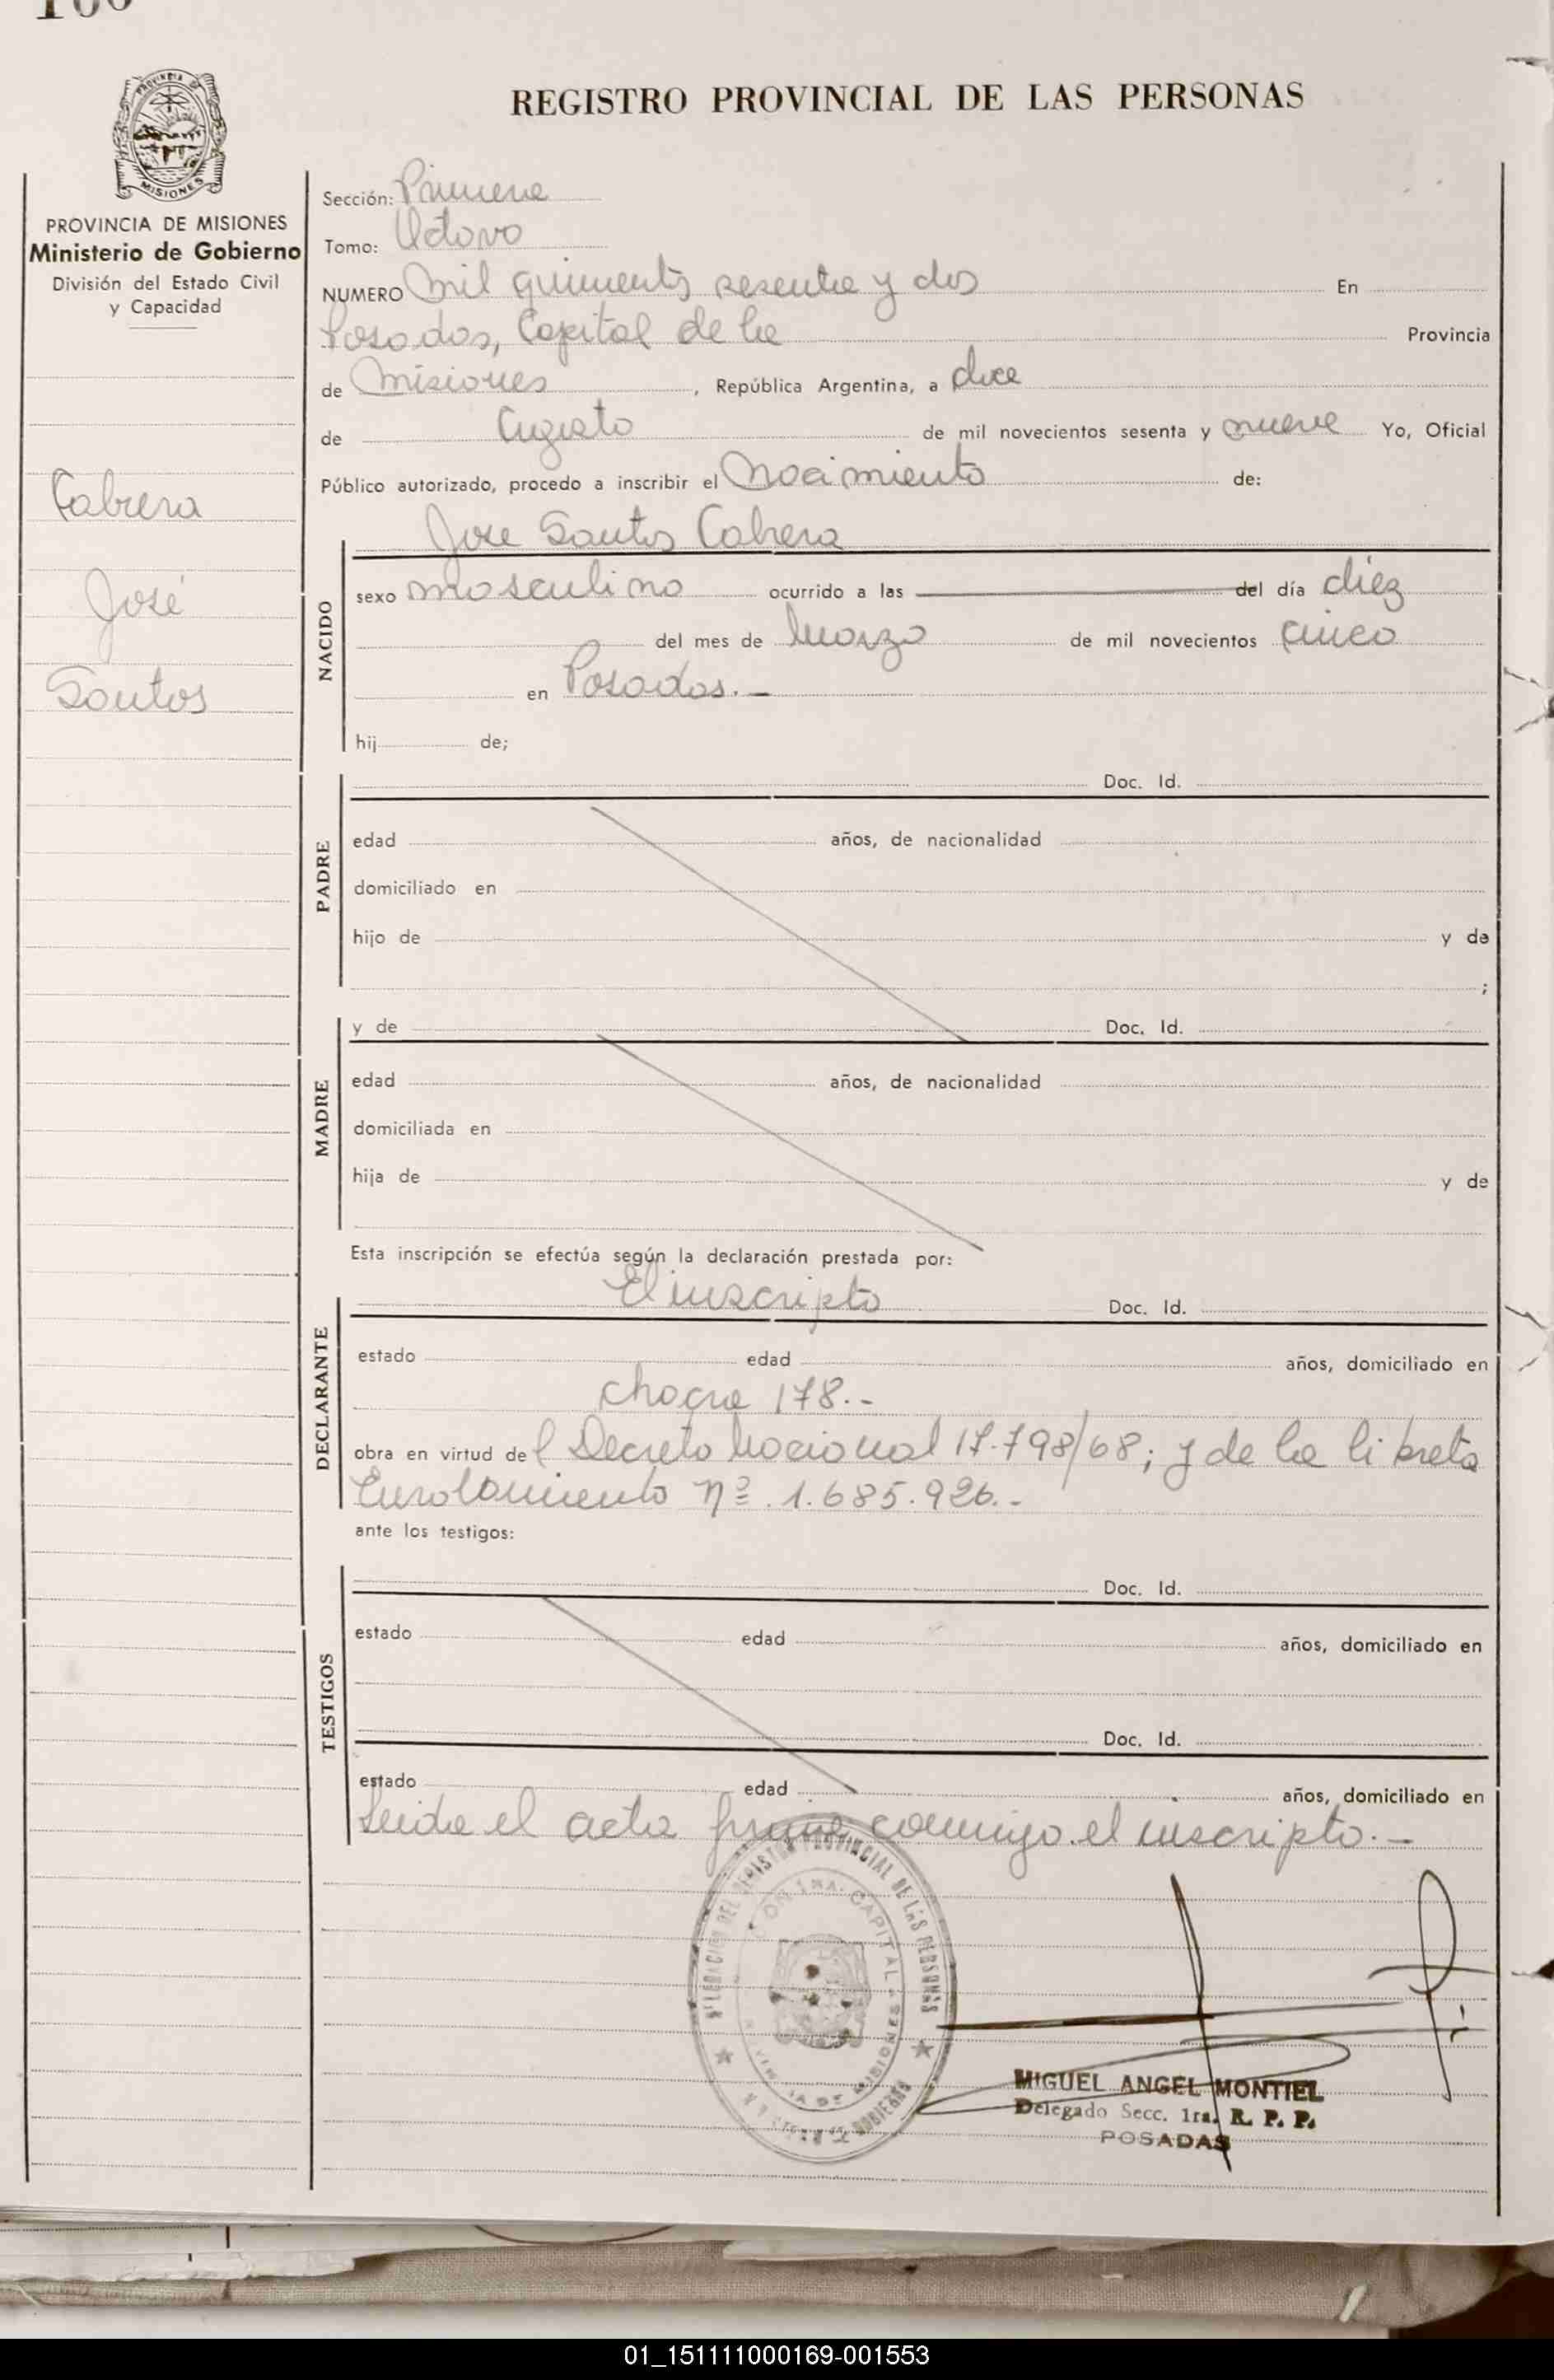 REGISTRO PROVINCIAL DE LAS PERSONAS
MISIONES
PROVINCIA DE MISIONES
Ministerio de Gobierno
División del Estado Civil
y Capacidad
Cabrera
José
Santos
Sección: Primera
Tomo: Octavo
NUMERO mil quinientos sesenta y dos En
Posadas, Capital de la Provincia
de Misiones, República Argentina, a doce
de Agosto de mil novecientos sesenta y nueve Yo, Oficial
Público autorizado, procedo a inscribir el Nacimiento de:
Jose Santos Cabrera
NACIDO
sexo masculino ocurrido a las del día diez
del mes de Marzo de mil novecientos cinco
en Posadas.-
hij de;
PADRE
Doc. Id.
edad años, de nacionalidad
domiciliado en
hijo de y de
;
MADRE
y de Doc. Id.
edad años, de nacionalidad
domiciliada en
hija de y de
Esta inscripción se efectúa según la declaración prestada por:
DECLARANTE
El inscripto Doc. Id.
estado edad años, domiciliado en
chacra 178.-
obra en virtud del Decreto Nacional 17.798/68; y de la libreta
Enrolamiento Nº 1.685.926.-
ante los testigos:
TESTIGOS
Doc. Id.
estado edad años, domiciliado en
Doc. Id.
estado edad años, domiciliado en
Leida el acta firma conmigo el inscripto.-
DELEGACION DEL REGISTRO PROVINCIAL DE LAS PERSONAS
CAPITAL
MISIONES
MIGUEL ANGEL MONTIEL
Delegado Secc. 1ra. R. P. P.
POSADAS
01_151111000169-001553